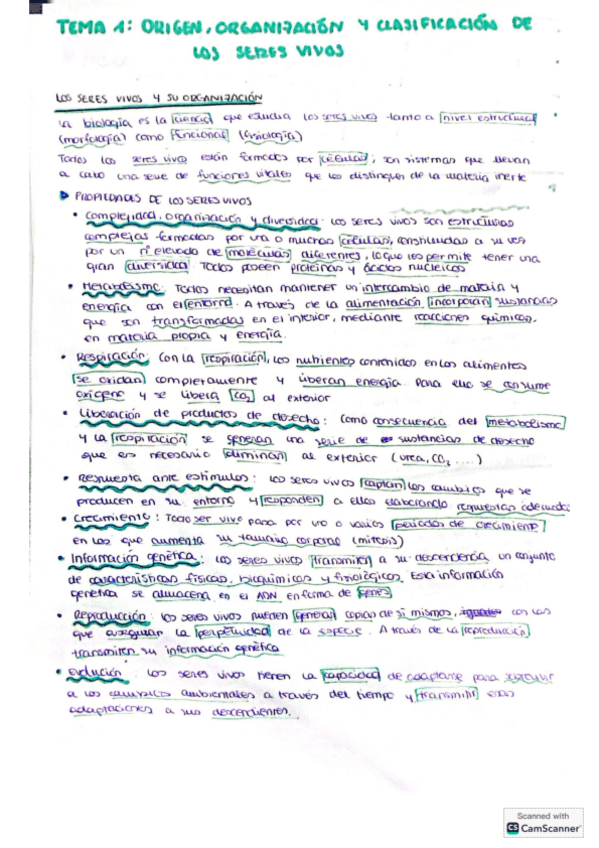 TEMA 1: ORIGEN, ORGANIZACIÓN Y CLASIFICACIÓN DE
LOS SERES VIVOS
LOS SERES VIVOS Y SU ORGANIZACIÓN
La biología es la ciencia que estudia los seres vivos tanto a nivel estructural
(morfología) como funcional (fisiología)
Todos los seres vivos están formados por células, son sistemas que llevan
a cabo una serie de funciones vitales que los distinguen de la materia inerte
PROPIEDADES DE LOS SERES VIVOS
• Complejidad, organización y diversidad: los seres vivos son estructuras
complejas formadas por una o muchas células, constituidas a su vez
por un nº elevado de moléculas diferentes, lo que les permite tener una
gran diversidad. Todos poseen proteínas y ácidos nucleicos
• Metabolismo: Todos necesitan mantener un intercambio de materia y
energía con el entorno. A través de la alimentación incorporan sustancias
que son transformadas en el interior, mediante reacciones químicas,
en materia propia y energía.
• Respiración: Con la respiración, los nutrientes contenidos en los alimentos
se oxidan completamente y liberan energía. Para ello se consume
oxígeno y se libera CO2 al exterior
• Liberación de productos de desecho: Como consecuencia del metabolismo
y la respiración se generan una serie de sustancias de desecho
que es necesario eliminar al exterior (urea, CO2, ....)
• Respuesta ante estímulos: los seres vivos captan los cambios que se
producen en su entorno y responden a ellos elaborando respuestas adecuadas
• Crecimiento: Todo ser vivo pasa por uno o varios periodos de crecimiento
en los que aumenta su tamaño corporal (mitosis)
• Información genética: los seres vivos transmiten a su descendencia un conjunto
de características físicas, bioquímicas y fisiológicas. Esta información
genética se almacena en el ADN en forma de genes
• Reproducción: los seres vivos pueden generar copias de sí mismos, con las
que aseguran la perpetuidad de la especie. A través de la reproducción
transmiten su información genética
• Evolución: los seres vivos tienen la capacidad de adaptarse para sobrevivir
a los cambios ambientales a través del tiempo y transmitir esas
adaptaciones a sus descendientes.
Scanned with
CS CamScanner